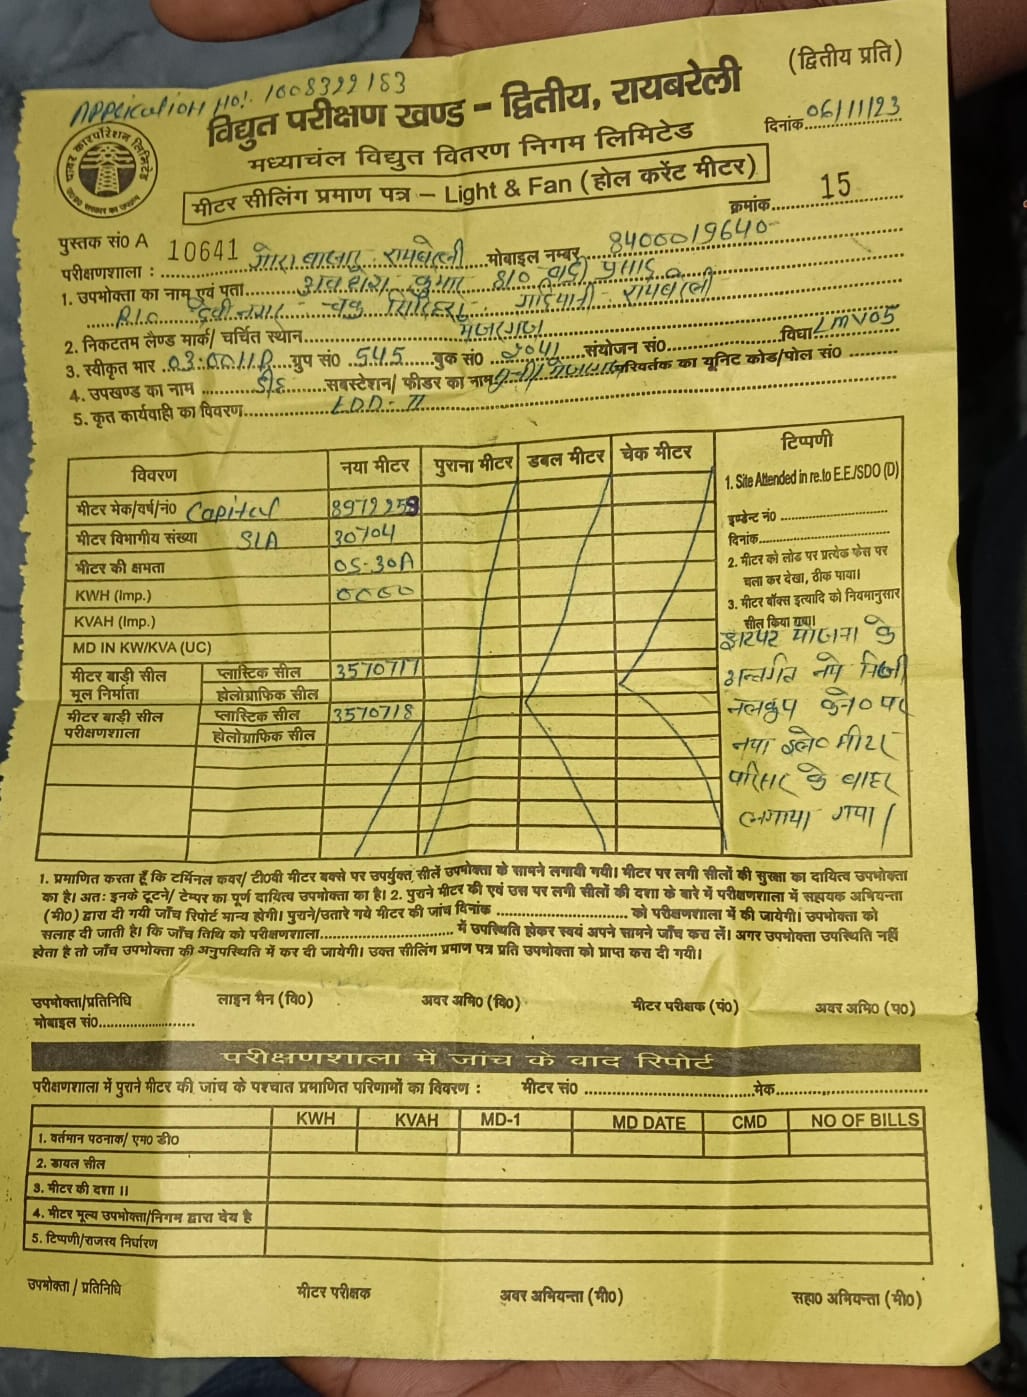 Application No!. 1008322183
(द्वितीय प्रति)
विद्युत परीक्षण खण्ड - द्वितीय, रायबरेली
दिनांक 06/11/23
मध्याचंल विद्युत वितरण निगम लिमिटेड
मीटर सीलिंग प्रमाण पत्र – Light & Fan (होल करेंट मीटर)
क्रमांक 15
पुस्तक सं0 A 10641
मोबाइल नम्बर 8400019640
परीक्षणशाला : गोरा बाजार रायबरेली
1. उपभोक्ता का नाम एवं पता अवधेश कुमार S/O प्रसाद
R/O देवी नगर चक गढ़ियानी रायबरेली
2. निकटतम लैण्ड मार्क/ चर्चित स्थान
3. स्वीकृत भार 03.00HP ग्रुप सं0 545 बुक सं0 2041 संयोजन सं0 विधा LMV05
4. उपखण्ड का नाम सबस्टेशन/ फीडर का नाम परिवर्तक का यूनिट कोड/पोल सं0
5. कृत कार्यवाही का विवरण EDD-II
विवरण नया मीटर पुराना मीटर डबल मीटर चेक मीटर टिप्पणी
मीटर मेक/वर्ष/नं0 Capital 8972259
मीटर विभागीय संख्या SLA 30704
मीटर की क्षमता 05-30A
KWH (Imp.) 0000
KVAH (Imp.)
MD IN KW/KVA (UC)
मीटर बाड़ी सील मूल निर्माता प्लास्टिक सील 3570717
होलोग्राफिक सील
मीटर बाड़ी सील परीक्षणशाला प्लास्टिक सील 3570718
होलोग्राफिक सील
1. Site Attended in re.to E.E./SDO (D)
इण्डेन्ट नं0
दिनांक
2. मीटर को लोड पर प्रत्येक फेस पर
चला कर देखा, ठीक पाया।
3. मीटर बॉक्स इत्यादि को नियमानुसार
सील किया गया।
योजना के
अन्तर्गत नये निजी
नलकूप कने0 पर
नया इले0 मीटर
परिसर के बाहर
लगाया गया।
1. प्रमाणित करता हूँ कि टर्मिनल कवर/ टी0वी मीटर बक्से पर उपर्युक्त सीलें उपभोक्ता के सामने लगायी गयी। मीटर पर लगी सीलों की सुरक्षा का दायित्व उपभोक्ता
का है। अतः इनके टूटने/ टेम्पर का पूर्ण दायित्व उपभोक्ता का है। 2. पुराने मीटर की एवं उस पर लगी सीलों की दशा के बारे में परीक्षणशाला में सहायक अभियन्ता
(मी0) द्वारा दी गयी जाँच रिपोर्ट मान्य होगी। पुराने/उतारे गये मीटर की जांच दिनांक को परीक्षणशाला में की जायेगी। उपभोक्ता को
सलाह दी जाती है। कि जाँच तिथि को परीक्षणशाला में उपस्थिति होकर स्वयं अपने सामने जाँच करा लें। अगर उपभोक्ता उपस्थिति नहीं
होता है तो जाँच उपभोक्ता की अनुपस्थिति में कर दी जायेगी। उक्त सीलिंग प्रमाण पत्र प्रति उपभोक्ता को प्राप्त करा दी गयी।
उपभोक्ता/प्रतिनिधि लाइन मैन (वि0) अवर अभि0 (वि0) मीटर परीक्षक (पं0) अवर अभि0 (प0)
मोबाइल सं0
परीक्षणशाला में जांच के बाद रिपोर्ट
परीक्षणशाला में पुराने मीटर की जांच के पश्चात प्रमाणित परिणामों का विवरण : मीटर सं0 मेक
KWH KVAH MD-1 MD DATE CMD NO OF BILLS
1. वर्तमान पठनाक/ एम0 डी0
2. डायल सील
3. मीटर की दशा ।।
4. मीटर मूल्य उपभोक्ता/निगम द्वारा देय है
5. टिप्पणी/राजस्व निर्धारण
उपभोक्ता / प्रतिनिधि मीटर परीक्षक अवर अभियन्ता (मी0) सहा0 अभियन्ता (मी0)